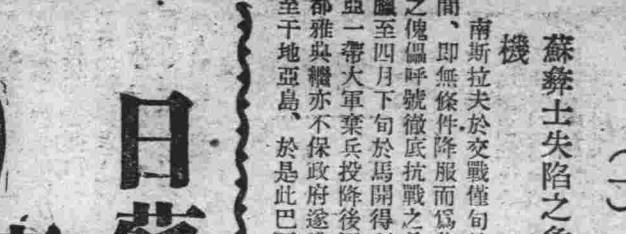 (一)
蘇彝士失陷之
機
南斯拉夫於交戰僅旬
間、即無條件降服而爲
之傀儡呼號徹底抗戰之
臘至四月下旬於馬開得
亞一帶大軍棄兵投降後
都雅典繼亦不保政府遂
至干地亞島、於是此巴
日蘇